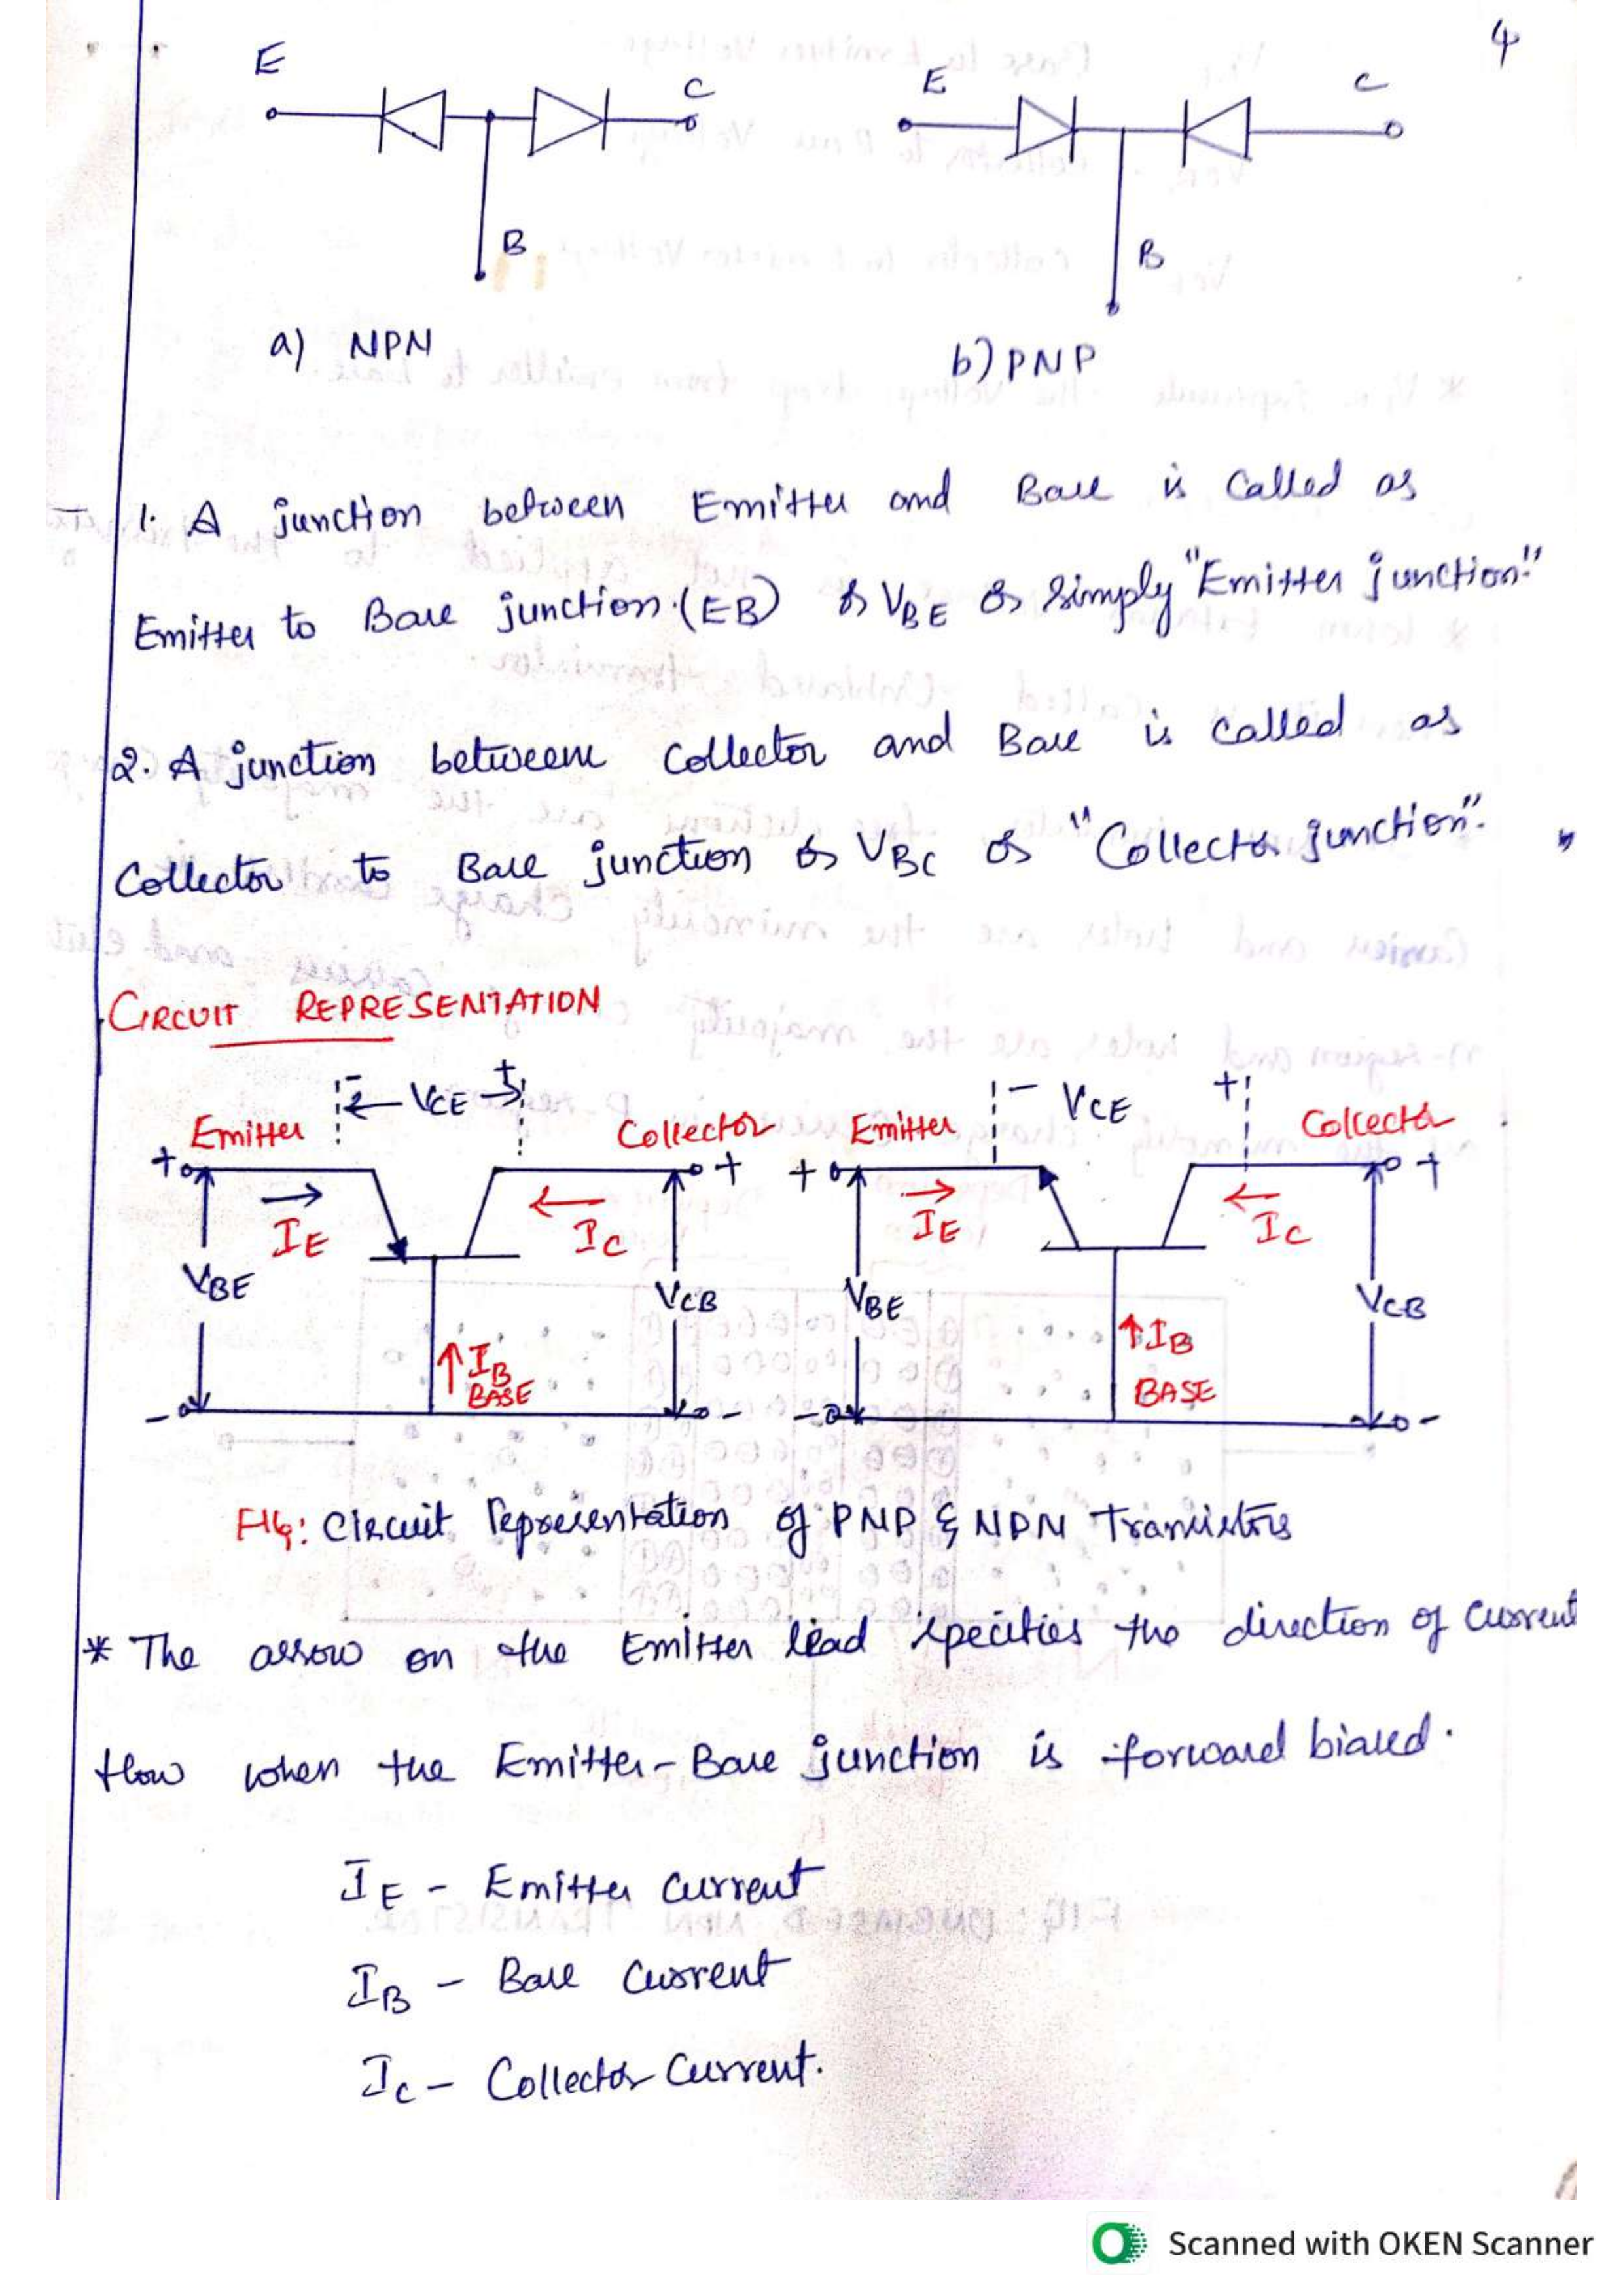 4
E C E C
B B
a) NPN b) PNP
1. A junction between Emitter and Base is called as
Emitter to Base junction (EB) or VBE or simply "Emitter junction"
2. A junction betweene collector and Base is called as
Collector to Base junction or VBC or "Collector junction".
CIRCUIT REPRESENTATION
- VCE + - VCE +
Emitter Collector Emitter Collector
+ + + +
IE IC IE IC
VBE VCB VBE VCB
IB IB
BASE BASE
- - - -
FIG: Circuit representation of PNP & NPN Transistors
* The arrow on the Emitter lead specifies the direction of current
flow when the Emitter-Base junction is forward biased.
IE - Emitter current
IB - Base current
IC - Collector Current.
Scanned with OKEN Scanner